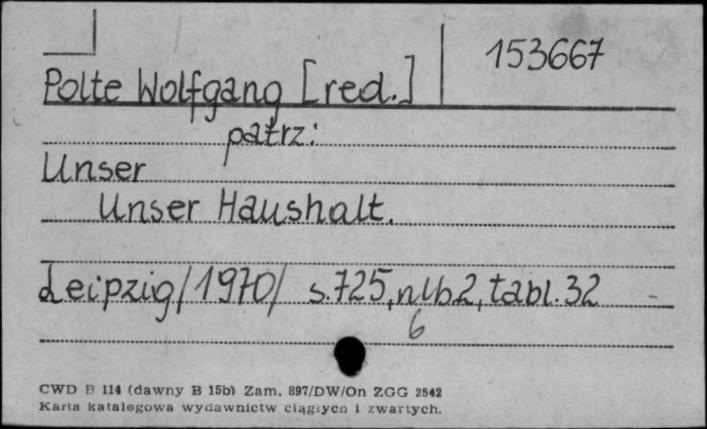 153667
Polte Wolfgang [red.]
patrz:
Unser
Unser Haushalt.
Leipzig/1970/ s.725, nlb2, tabl.32
6
CWD B 114 (dawny B 15b) Zam. 897/DW/On ZGG 2542
Karta katalogowa wydawnictw ciągłych i zwartych.